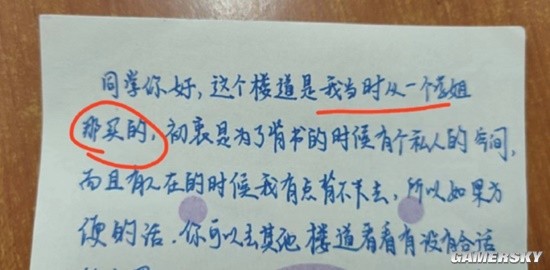 同学你好，这个楼道是我当时从一个学姐
那买的，初衷是为了背书的时候有个私人的空间，
而且有人在的时候我有点背不下去，所以如果方
便的话，你可以去其他楼道看看有没有合适
GAMERSKY